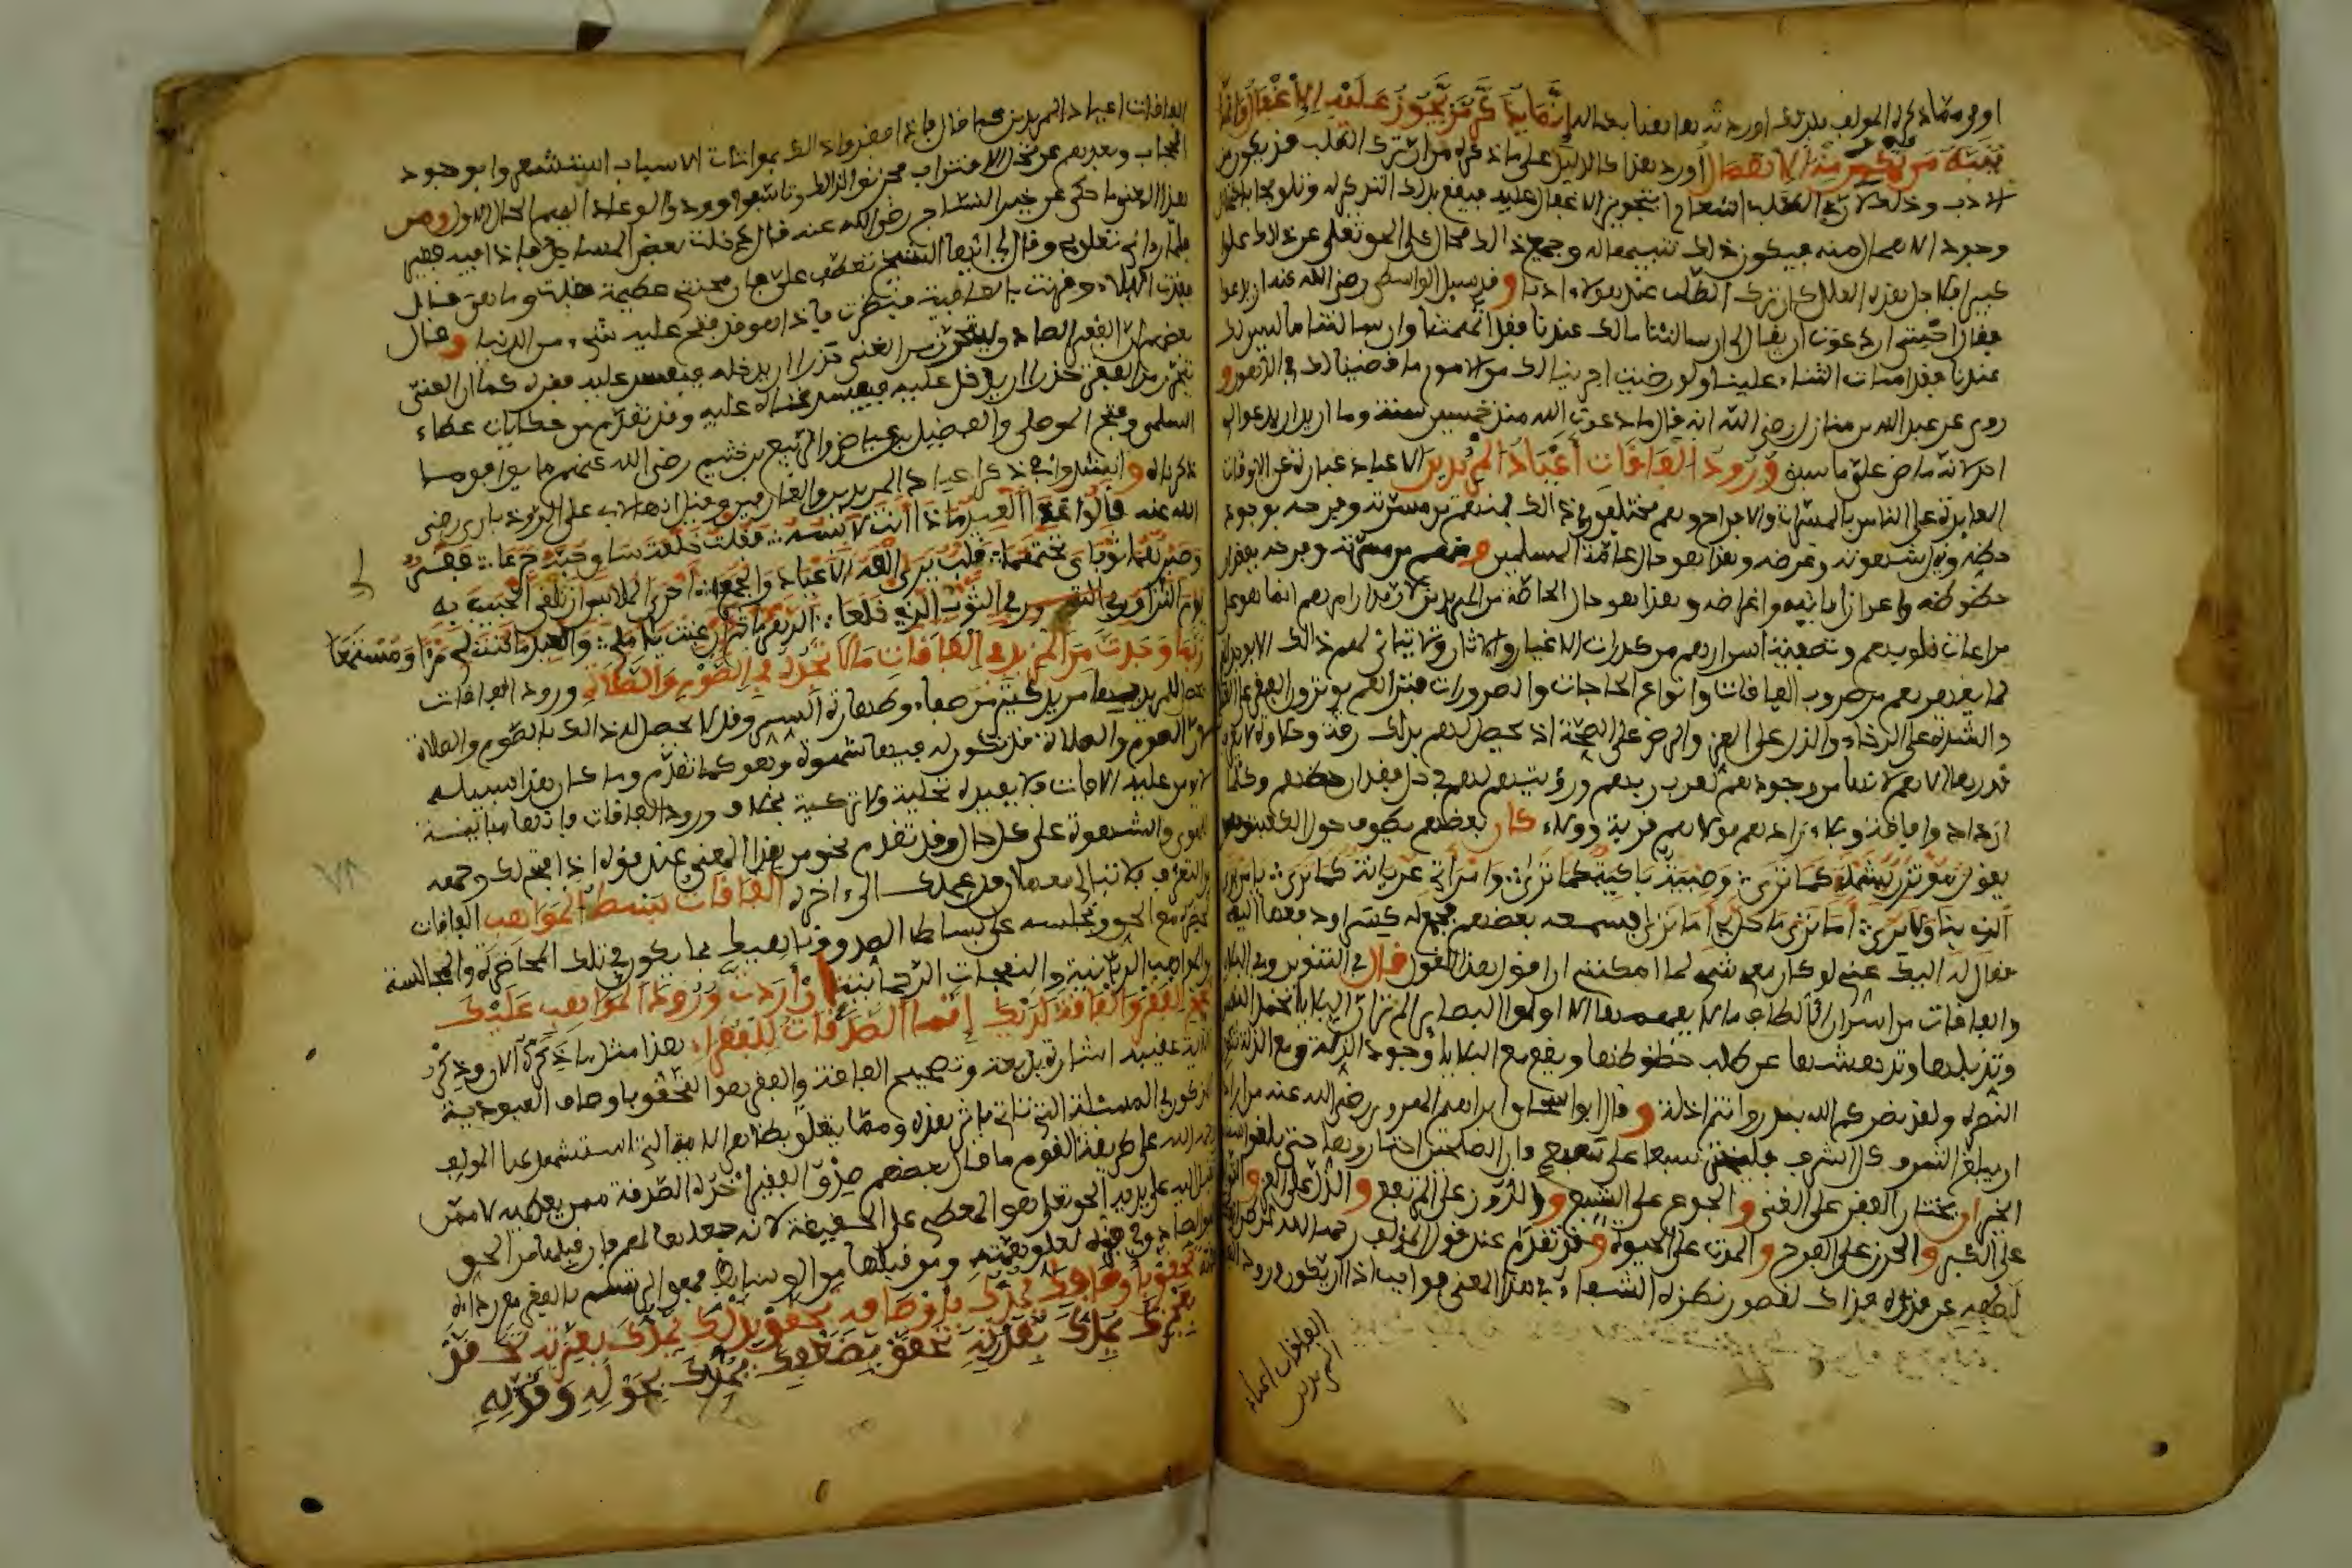 اولى مما ذكره المولف اورد بعد هذا انما يذكر من يجوز عليه الاغفال وانما
ينبه من يمكن منه الاهمال اورد هذا كالدليل على ما ذكره من ان ترك الطلب قد يكون من
الادب وذلك لان في الطلب اشعارا بتجويز الاغفال عليه فيقع بذلك التذكير له وتلويحا باحتمال
وجود الاهمال منه فيكون ذلك تنبيها له وجميع ذلك محال على الحق تعلى عن ذلك علوا
كبيرا فلاجل هذه العلل كان ترك الطلب عند هولاء ادبا وقد سيل الواسطي رضي الله عنه ان يدعوا
فقال اخشى ان دعوت ان يقال لي ان سالتنا ما لك عندنا فقد اتهمتنا وان سالتنا ما ليس لك
عندنا فقد اسات الثناء علينا ولو رضيت اجرينا لك من الامور ما قضينا لك في الدهور و
روي عن عبد الله بن منازل رضي الله انه قال ما دعوت الله منذ خمسين سنة وما اريد ان يدعوا لي
احد لانه ماض على ما سبق ورود الفاقات أعياد المريدين الاعياد عبارة عن الاوقات
العايدة على الناس بالمسرات والافراح وهم مختلفون في ذلك فمنهم من مسرته وفرحه بوجود
حظه ونيل شهوته وغرضه وهذا هو حال عامة المسلمين ومنهم من مسرته وفرحه بفقدان
حظوظه واعراض امانيه واغراضه وهذا هو حال الخاصة من المريدين لان مدارامرهم انما هو على
مراعات قلوبهم وتصفية اسرارهم من كدرات الاغيار والاثار ولا يتاتى لهم ذلك الا بوجدان
لما يقهرهم من ضروب الفاقات وانواع الحاجات والضرورات فتراهم يوثرون الفقر على الغنا
والشدة على الرخاء والذل على العز والمرض على الصحة اذ يحصل لهم بذلك رقة وحلاوة لا
قدرها الا هم لانها من وجودهم لقرب ربهم ورؤيتهم لهم في حل مقدار حظهم وكلما
ازداد وا فاقة وبلاء زادهم مولاهم قربة وولاء كان بعضهم يطوف حول الكعبة وهو
يقول مؤتزر بشملة كما ترى وصبية باكية كما ترى وامرأتي عريانة كما ترى يا من يرى
الذي بنا ولا يرى اما ترى ما حل بي اما ترى فسمعه بعضهم فجمع له كسرا ودفعها اليه
فقال له اليك عني لو كان معي شيء لما امكنني ان اقول هذا القول قال في التنوير وفي البلايا
والفاقات من اسرار الالطاف ما لا يفهمها الا اولوا البصاير الم تر ان البلايا تخمد النفس
وتذلها وتدهشها عن طلب حظوظها ويقع مع البلايا وجود الذلة ومع الذلة تكون
النصرة ولقد نصركم الله ببدر وانتم اذلة و قال ابو اسحاق ابراهيم الهروي رضي الله عنه من اراد
ان يبلغ الشرف كل الشرف فليختر سبعا على سبع فان الصالحين اختاروها حتى بلغوا سنام
الخير ان يختار الفقر على الغنى و الجوع على الشبع و الدون على المرتفع و الذل على العز و التواضع
على الكبر و الحزن على الفرح و الموت على الحيوة وقد تقدم عند قول المولف رحمه الله
لطفه عن قدره فذلك لقصور نظره الشفاء في هذا المعنى فواجب اذا ان يكون ورود
الفاقات اعياد
المريدين
الفاقات اعياد المريدين كما قال فاذا فقدوا ذلك بموالات الاسباب استشعروا بوجود
الحجاب وبعدهم عن محل الاقتراب فحزنوا لذلك وتاسفوا وودوا لو عاد اليهم الحال الاول ومن
هذا المعنى ما حكى عن خير النساج رضي الله عنه قال دخلت بعض المساجد فاذا فيه فقير
فلما راني تعلق بي وقال لي ايها الشيخ تعطف علي فان محنتي عظيمة فقلت وما هي فقال
فقدت البلاء وقرنت بالعافية فنظرت فاذا هو قد فتح عليه شيء من الدنيا وقال
بعضهم ان الفقير الصادق ليتحرز من الغنى حذرا ان يدخله فيفسد عليه فقره كما ان الغني
يتحرز من الفقر حذرا ان يدخل عليه فيفسد غناه عليه وقد تقدم من حكايات عطاء
السلمي وفتح الموصلي والفضيل بن عياض والربيع بن خثيم رضي الله عنهم ما يوافق ما
ذكرناه و انشدوا في ذكر اعياد المريدين والعارفين وقيل انها لابي علي الروذباري رضي
الله عنه قالوا غدا العيد ماذا انت لابسه فقلت خلعة ساق حبه جرعا فقر
وصبر هما ثوباي تحتهما قلب يرى الفه الاعياد والجمعا احرى الملابس ان تلقى الحبيب به
يوم التزاور في الثوب الذي خلعا الدهر لي ماتم ان غبت يا املي والعيد ما كنت لي مرءا ومستمعا
ربما وجدت من المزيد في الفاقات ما لا تجده في الصوم والصلاة ورود الفاقات
يحصل للمريد بسببها مزيد كثير من صفاء وطهارة السر وقد لا يحصل له ذلك بالصوم والصلاة
لان الصوم والصلاة قد تكون له فيهما شهوة وهو كما تقدم وما كان هذا سبيله
لا يومن عليه الافات فلا يفيده تحلية ولا تزكية بخلاف ورود الفاقات فانها مباينة
للهوى والشهوة على كل حال وقد تقدم نحو من هذا المعنى عند قوله اذا فتح لك وجهة
من التعرف فلا تبالي معها ان قل عملك الى اخره الفاقات بسط المواهب الفاقات
تحضره مع الحق وتجلسه على بساط الصدق وناهيك بما يكون في تلك المحاضرة والمجالسة
من المواهب الربانية والنفحات الرحمانية ان أردت ورود المواهب عليك
صحح الفقر والفاقة لديك إنما الصدقات للفقراء هذا مثل ما ذكره الان وذكر
الاية عقيبه اشارة بديعة وتصحيح الفاقة والفقر هو التحقق باوصاف العبودية
المذكور في المسئلة التي تاتي باثر هذه ومما يتعلق بظاهر الاية التي استشهد بها المولف
رحمه الله على طريقة القوم ما قال بعضهم صدق الفقير اخذه الصدقة ممن يعطيه لا ممن
تصل اليه على يديه الحق تعلى هو المعطي على الحقيقة لانه جعلها لهم فان قبلها من الحق
فهو الصادق في فقره لعلو همته ومن قبلها من الوسايط فهو المترسم بالفقر مع رداءة
همته تحقق بأوصافك يمدك بأوصافه تحقق بذلك يمدك بعزته تحقق
بعجزك يمدك بقدرته تحقق بضعفك يمدك بحوله وقوته